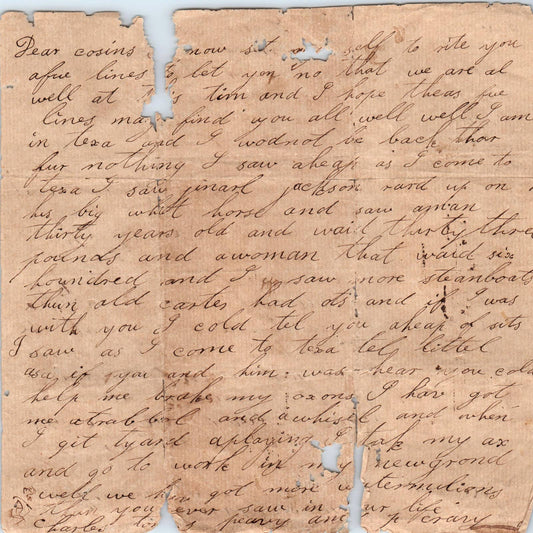 Dear cosins I now set my self to rite you
afue lines to let you no that we are al
well at this tim and I hope theas fue
lines may find you all well well I am
in texa and I wodnot be back thar
fur nothing I saw aheap as I come to
texa I saw jinarl jackson rard up on
his big whit horse and saw aman
thirty years old and waid thirty three
pounds and awoman that waid six
houndred and I saw more steanboats
than old carter had ots and if I was
with you I cold tel you aheap of sits
I saw as I come to texa tel littel
asa if you and him was hear you cold
help me brake my oxons I have got
me and a whisel and when
I git tyard aplaying I tak my ax
and go to work in my newgrond
well we hav got more watermilions
than you ever saw in your life
Charles peavy and peavy